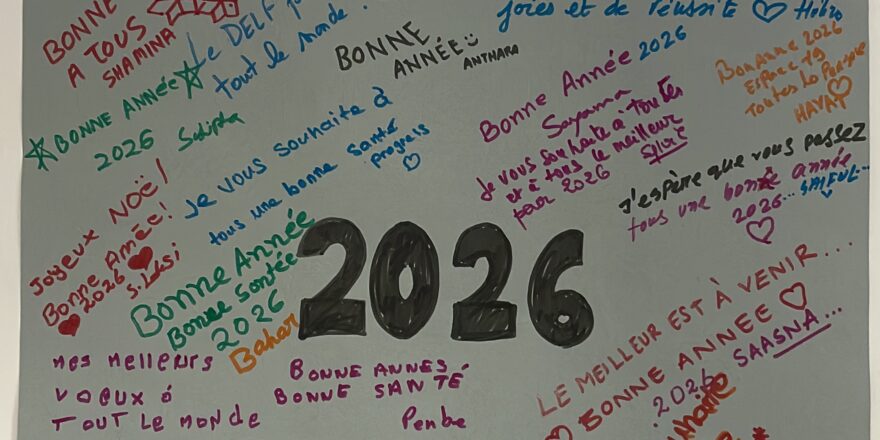 BONNE
A TOUS
SHAMINA
Le DELF
tout le monde !
BONNE
ANNÉE
ANTHARA
joies et de réussite
BONNE ANNÉE
2026
Je vous souhaite à
tous une bonne santé
prograis
Bonne Année 2026
Je vous souhaite à toutes
et à tous le meilleur
pour 2026
BonAnne 2026
ESPace 19
Toutes
HAYAT
J'espère que vous passez
tous une bonne année
2026...
SAIFUL...
Joyeux NOËL!
Bonne Année!
2026
S. Laksi
Bonne Année
Bonne Sontée
2026
Bahar
2026
mes meilleurs
voeux à
TOUT Le monde
BONNE ANNES
BONNE SANTÉ
Penbe
LE MEILLEUR EST À VENIR...
BONNE ANNÉE
2026 SAASNA...